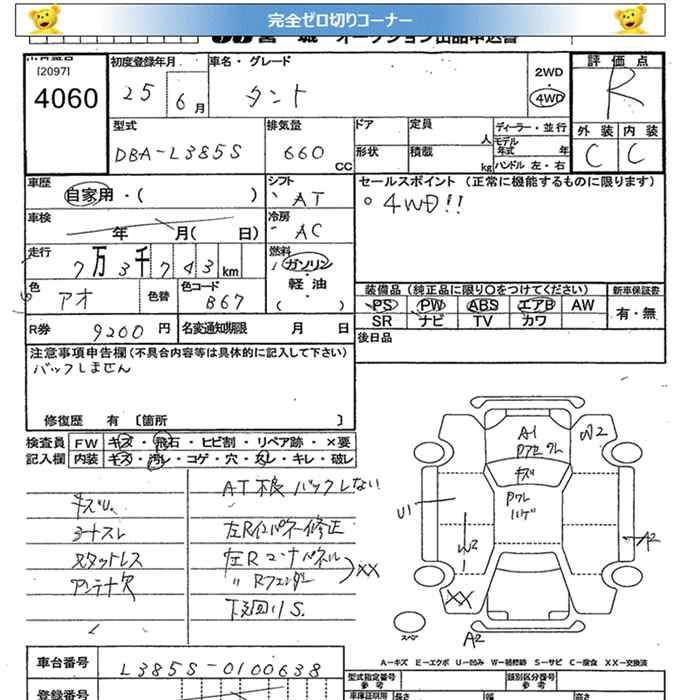 完全ゼロ切りコーナー
宮 城 オークション出品申込書
[2097]
4060
初度登録年月
25 6月
車名・グレード
タント
2WD
4WD
評価点
R
外装 内装
C C
型式
DBA-L385S
排気量
660 CC
ドア
定員
人
形状
積載
kg
ディーラー・並行
モデル年式 年
ハンドル 左・右
車歴
自家用・( )
シフト
AT
セールスポイント (正常に機能するものに限ります)
○ 4WD!!
車検
年 月( 日)
冷房
AC
走行
7万3千743km
燃料
ガソリン
・軽油
・( )
色
アオ
色替
色コード
B67
装備品 (純正品に限り○をつけてください)
PS PW ABS エアB AW
SR ナビ TV カワ
新車保証書
有・無
R券 9200円
名変通知期限 月 日
後日品
注意事項申告欄(不具合内容等は具体的に記入して下さい)
バックしません
修復歴 有 〔箇所 〕
検査員記入欄
FW キズ・飛石・ヒビ割・リペア跡・×要
内装 キズ・汚レ・コゲ・穴・スレ・キレ・破レ
キズU.
シートスレ
スタットレス
アンテナ欠
AT不良 バックしない
左Rインパネー修正
左Rコーナパネル
〃 Rフェンダー
XX
下廻りS.
A1
W2
キズ
ハゲ
U1
W2
A2
XX
スペ
A2
A-キズ E-エクボ U-凹み W-補修跡 S-サビ C-腐食 XX-交換済
車台番号
L385S-0100638
登録番号
型式指定番号
参考
類別区分番号
参考
車検証明用
長さ
幅
高さ